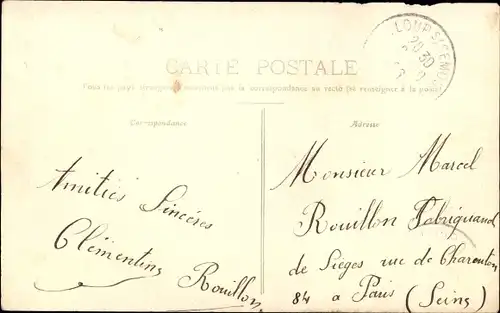 CARTE POSTALE
Tous les pays étrangers n'acceptent pas la correspondance au recto (se renseigner à la poste)
Correspondance
Adresse
Amitiés Sincères
Clémentine Rouillon
Monsieur Marcel
Rouillon Fabriquand
de Sièges rue de Charenton
84 a Paris (Seine)